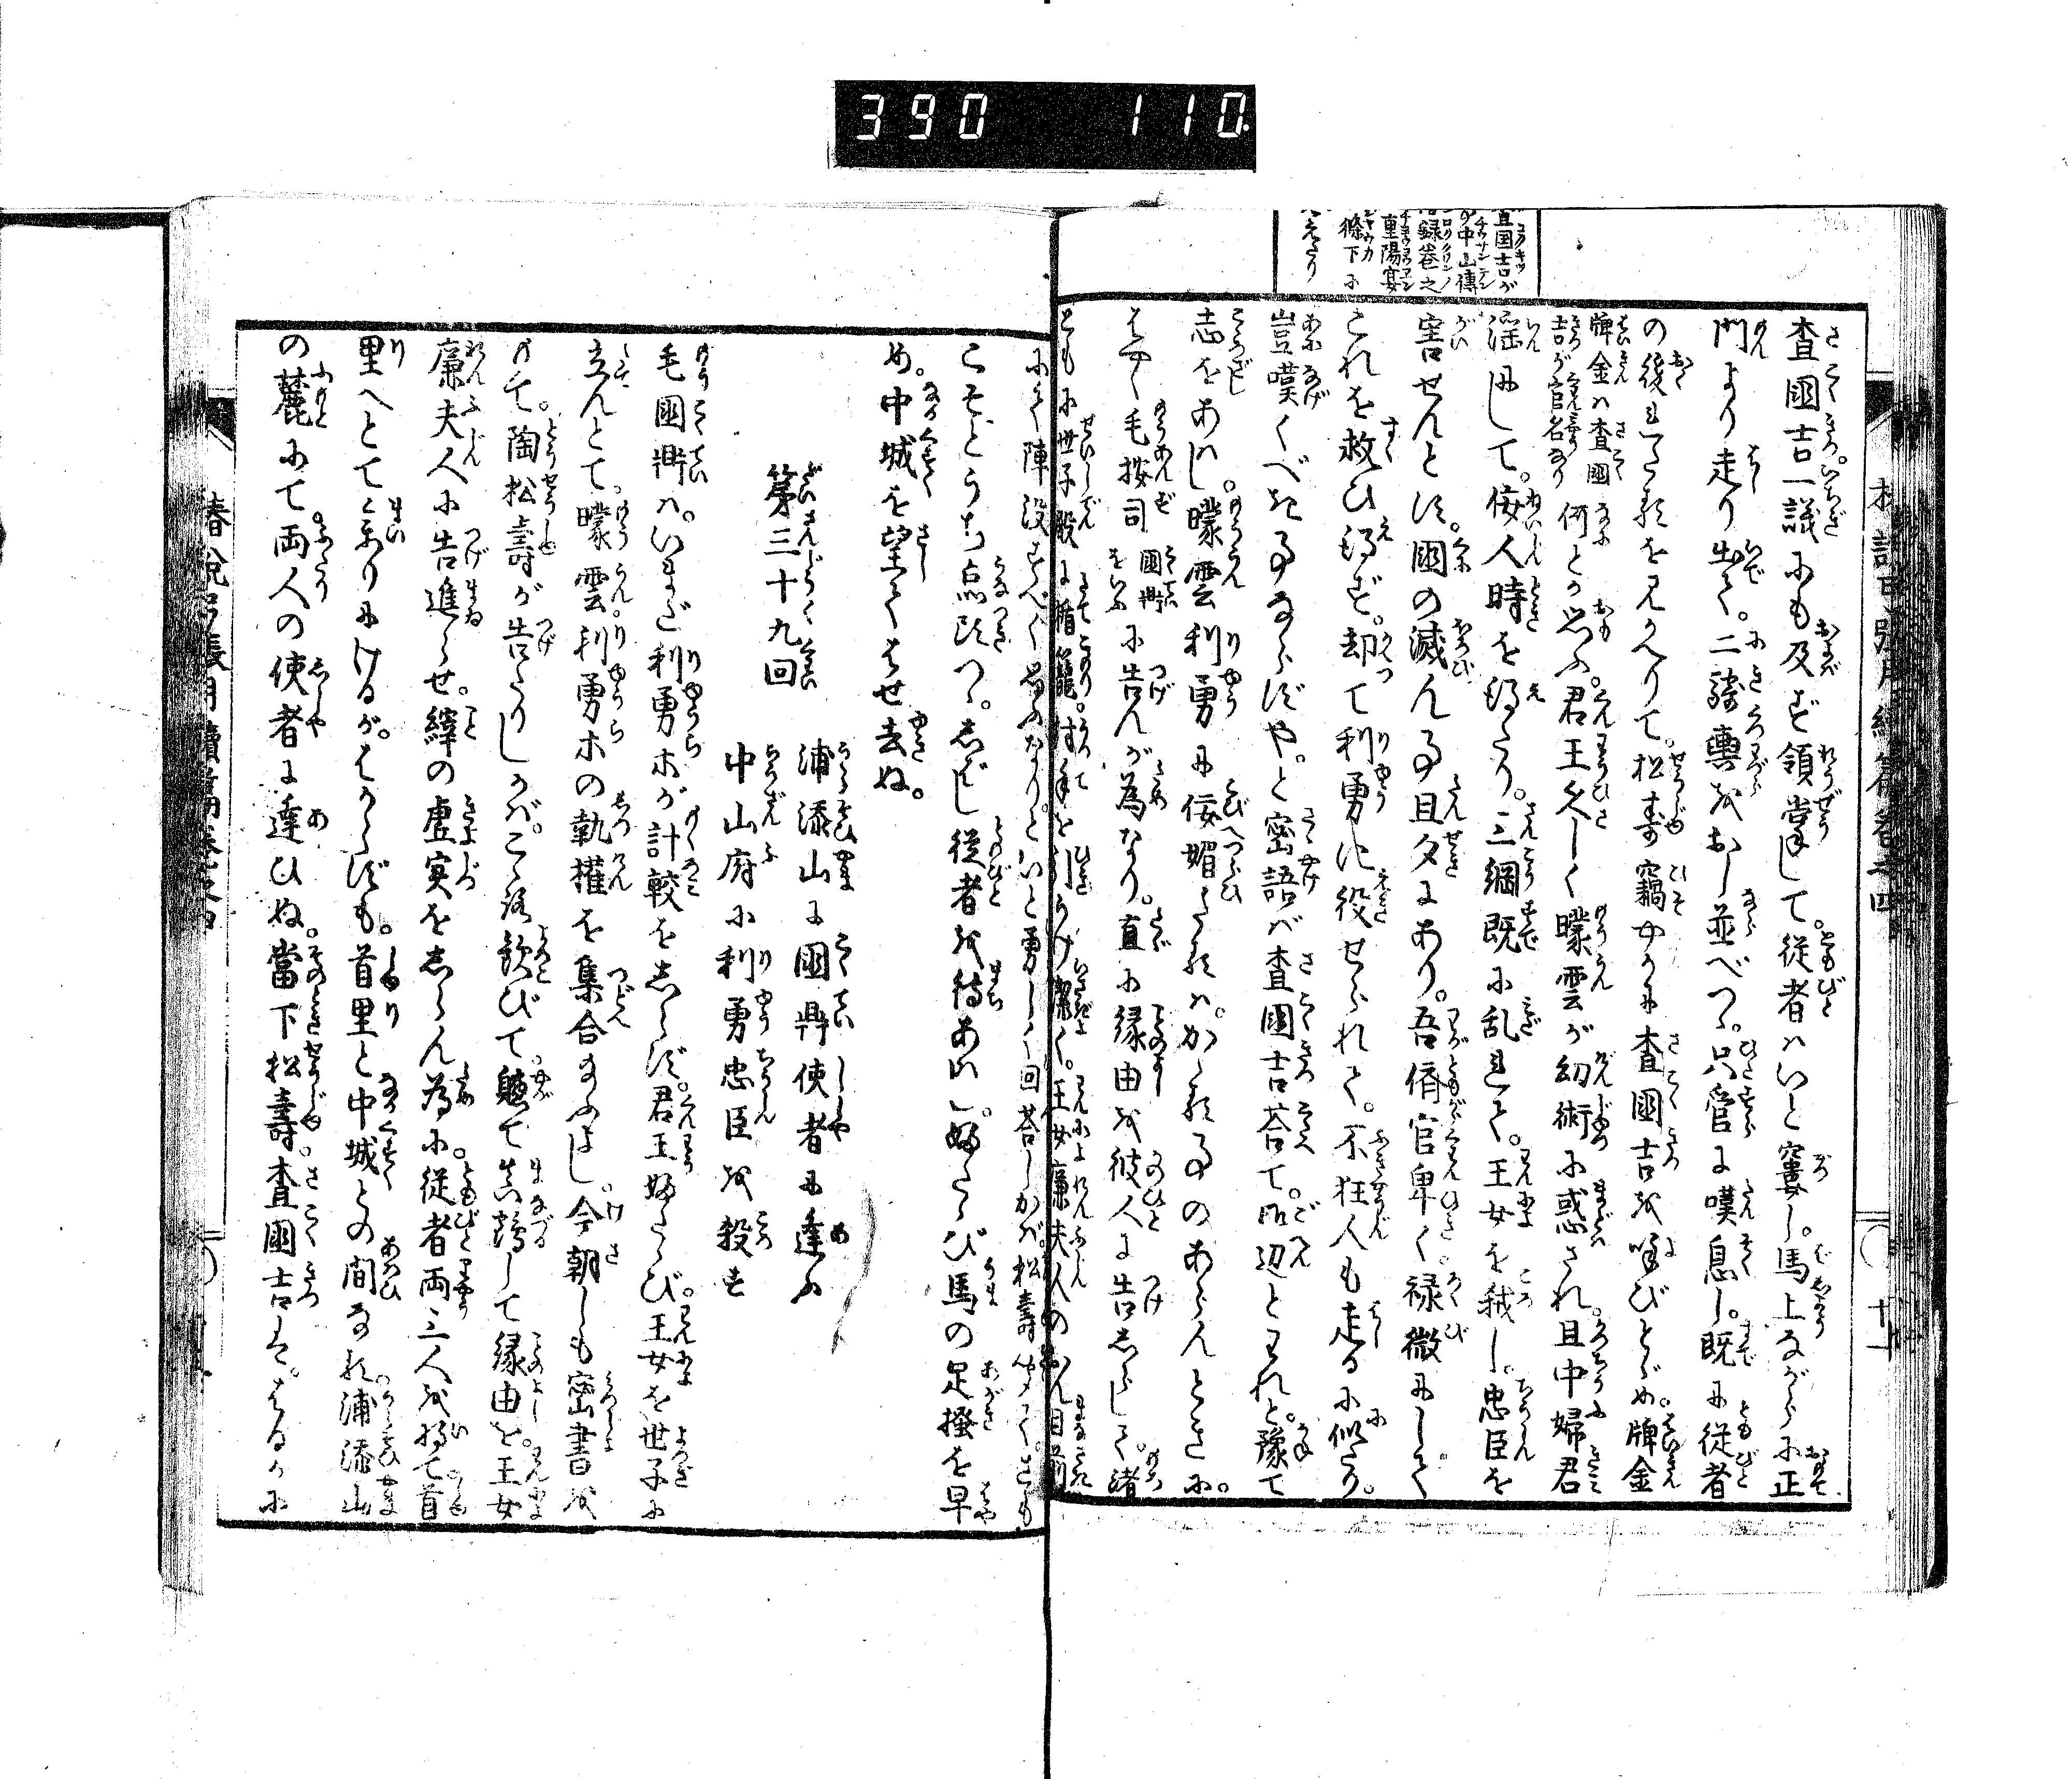 390 110
査國吉が
の中山傳
録巻之
重陽宴
條下に
見えたり
査國吉一議にも及ばず領掌して。従者はいと窶し。馬上ながらに正
門より走り出て。二騎轡をおし並べつゝ。只管に嘆息し。既に従者
の後れたるを見かへりて。松寿竊やかに査國吉を呼びとゞめ。牌金
牌金は査國
吉が官名なり
何とか思ふ。君王久しく曚雲が幻術に惑され。且中婦君
淫にして。佞人時を得たり。三綱既に乱れて。王女を弑し。忠臣を
害せんとす。國の滅ん事旦夕にあり。吾儕官卑く。禄微にして
これを救ひ得ず。却て利勇に役せられて。不狂人も走るに似たり。
豈嘆くべき事ならずや。と密語ば査國吉荅て。御辺とわれと。豫て
志をあはし。曚雲利勇に佞媚たるは。かゝる事のあらんときに。
はやく毛按司
國鼎
をいふ
に告んが為なり。直に縁由を彼人に告しらして。渚
ともに世子殿に楯籠。討手を引うけ潔く。王女廉夫人のおん目前
にて陣没すべく思ふなり。といと勇しく回荅しかば。松壽聞て。さも
こそとうち点頭つゝ。しばし従者を待あはし。ふたゝび馬の足掻を早
め。中城を望てはせ去ぬ。
第三十九回
浦添山に國鼎使者に逢ふ
中山府に利勇忠臣を殺す
毛國鼎は。いまだ利勇ホが計較をしらず。君王ふたゝび。王女を世子に
立んとて。曚雲。利勇ホの執權を集合給ふよし。今朝しも密書を
もて。陶松壽が告たりしかば。こゝろ歓びて。聴て真鶴して縁由を。王女
廉夫人に告進らせ。縡の虚実をしらん為に。従者両三人を将て首
里へとて参りにけるが。はからずも。首里と中城との間なる。浦添山
の麓にて両人の使者に逢ひぬ。當下松壽。査國吉は。はるかに
椿説弓張月續篇巻之四